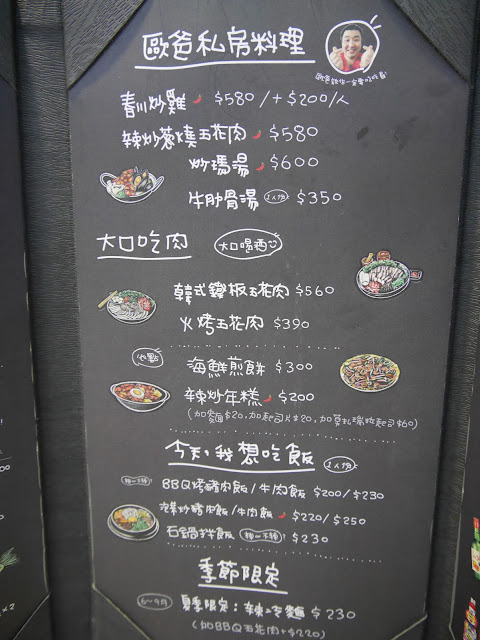 歐爸私房料理
春川炒雞 $580 /+$200/人
辣炒蔥燒五花肉 $580
炒瑪湯 $600
牛肋骨湯 1人份 $350
大口吃肉 大口喝酒
韓式鐵板五花肉 $560
火烤五花肉 $390
必點
海鮮煎餅 $300
辣炒年糕 $200
(加麵$20,加起司片$20,加莫扎瑞拉起司$60)
今天,我想吃飯 1人份
BBQ烤豬肉飯/牛肉飯 $200/$230
泡菜炒豬肉飯/牛肉飯 $220/$250
石鍋拌飯 辣or不辣! $230
季節限定
6~9月 夏季限定:辣冷麵 $230
(加BBQ五花肉+$220)